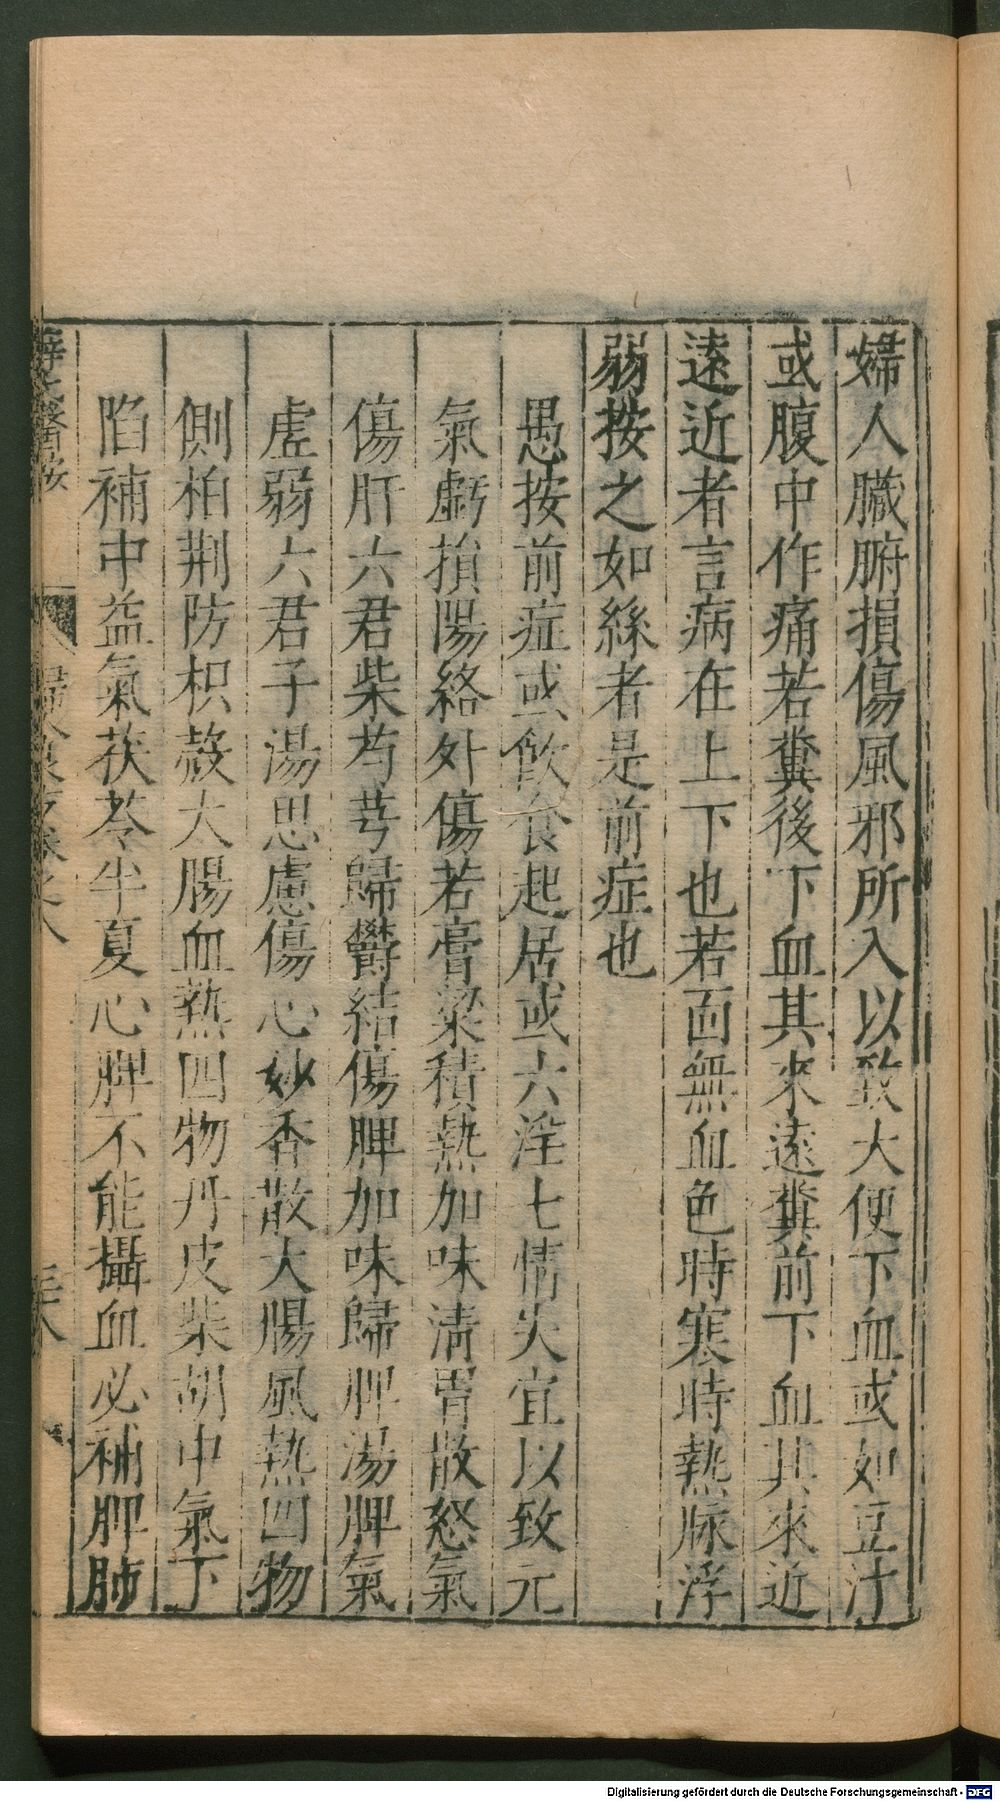 婦人臟腑損傷風邪所入以致大便下血或如豆汁
或腹中作痛若糞後下血其來遠糞前下血其來近
遠近者言病在上下也若面無血色時寒時熱脉浮
弱按之如絲者是前症也
愚按前症或飲食起居或六淫七情失宜以致元
氣虧損陽絡外傷若膏粱積熱加味清胃散怒氣
傷肝六君柴芍芎歸欝結傷脾加味歸脾湯脾氣
虗弱六君子湯思慮傷心妙香散大腸風熱四物
側柏荆防枳殼大腸血熱四物丹皮柴胡中氣下
陷補中益氣茯苓半夏心脾不能攝血必補脾肺
薛氏醫按
婦人良方卷之八
Digitalisierung gefördert durch die Deutsche Forschungsgemeinschaft - DFG